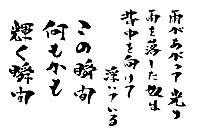 雨があがって 光り
雨を落した奴に
背中を向けて
浮いている
この瞬間
何もかも
輝く瞬間